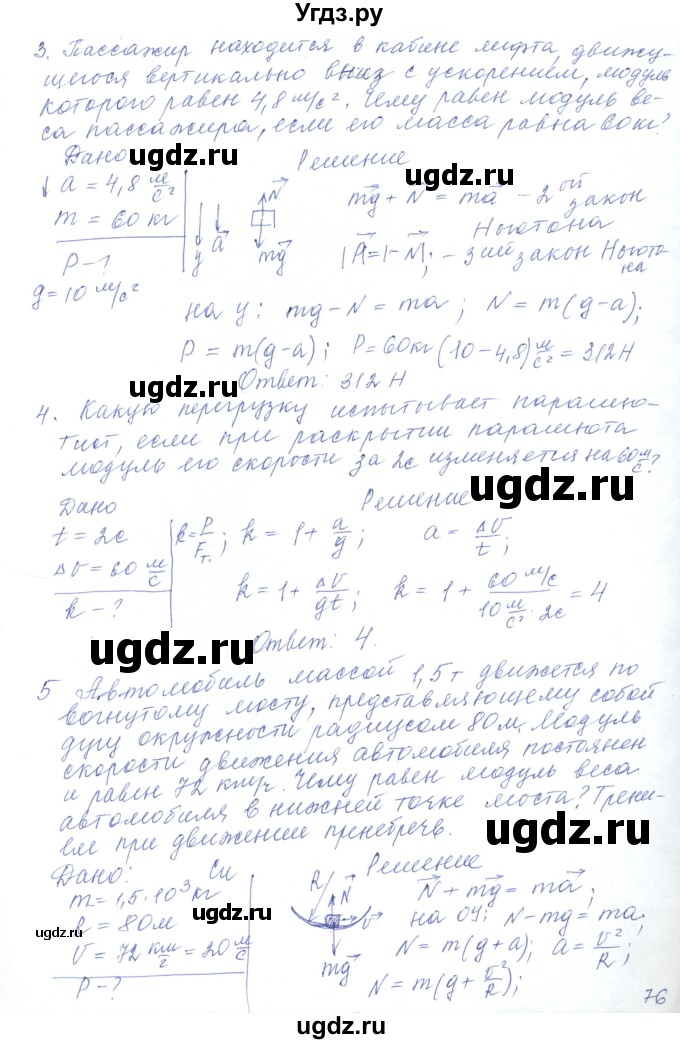 Угдз.ру
3. Пассажир находится в кабине лифта, движу-
щегося вертикально вниз с ускорением, модуль
которого равен 4,8 м/с². Чему равен модуль ве-
са пассажира, если его масса равна 60 кг?
Дано Решение
↓ a = 4,8 м/с²
m = 60 кг
P - ?
g = 10 м/с²
N
a
y
mg
mg + N = ma - 2ой закон
Ньютона
|P| = |-N|; - 3ий закон Ньюто-
на
на y: mg - N = ma; N = m(g-a);
P = m(g-a); P = 60кг (10 - 4,8) м/с² = 312 Н
Ответ: 312 Н
4. Какую перегрузку испытывает парашю-
тист, если при раскрытии парашюта
модуль его скорости за 2с изменяется на 60 м/с?
Дано Решение
t = 2с
Δv = 60 м/с
k - ?
k = P/Fт; k = 1 + a/g; a = Δv/t;
k = 1 + Δv/gt; k = 1 + 60 м/с / 10 м/с² · 2с = 4
Ответ: 4.
5 Автомобиль массой 1,5 т движется по
вогнутому мосту, представляющему собой
дугу окружности радиусом 80 м. Модуль
скорости движения автомобиля постоянен
и равен 72 км/ч. Чему равен модуль веса
автомобиля в нижней точке моста? Трени-
ем при движении пренебречь.
Дано: Си Решение
m = 1,5·10³ кг
R = 80 м
v = 72 км/г = 20 м/с
P - ?
R
N
v
mg
N + mg = ma;
на OY: N - mg = ma;
N = m(g+a); a = v²/R;
N = m(g + v²/R);
76
ugdz.ru
ugdz.ru
ugdz.ru
ugdz.ru
ugdz.ru
ugdz.ru
ugdz.ru
ugdz.ru
ugdz.ru
ugdz.ru
ugdz.ru
ugdz.ru